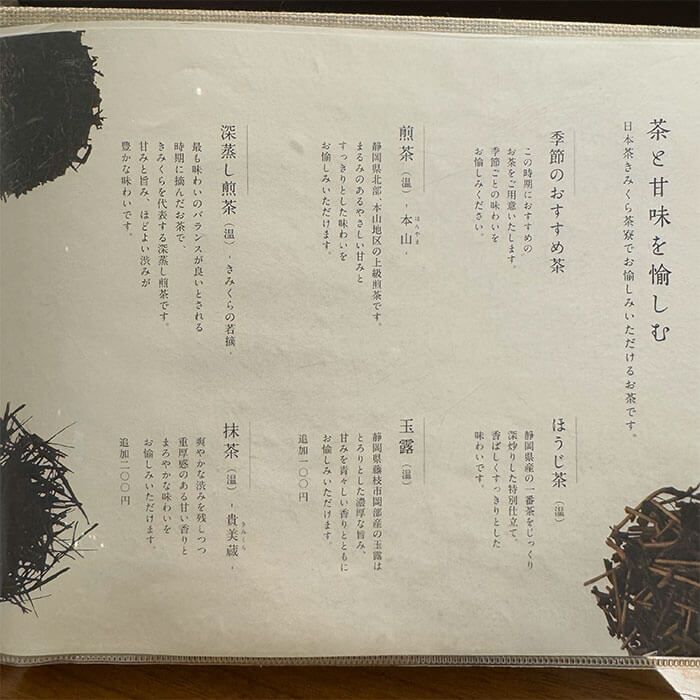 茶と甘味を愉しむ
日本茶きみくら茶寮でお愉しみいただけるお茶です。
季節のおすすめ茶
この時期におすすめの
お茶をご用意いたします。
季節ごとの味わいを
お愉しみください。
煎茶（温）- 本山 -
ほんやま
静岡県北部、本山地区の上級煎茶です。
まるみのあるやさしい甘みと
すっきりとした味わいを
お愉しみいただけます。
深蒸し煎茶（温）- きみくらの若摘 -
最も味わいのバランスが良いとされる
時期に摘んだお茶で、
きみくらを代表する深蒸し煎茶です。
甘みと旨み、ほどよい渋みが
豊かな味わいです。
ほうじ茶（温）
静岡県産の一番茶をじっくり
深炒りした特別仕立て。
香ばしくすっきりとした
味わいです。
玉露（温）
静岡県藤枝市岡部産の玉露は
とろりとした濃厚な旨み、
甘みを青々しい香りとともに
お愉しみいただけます。
追加一〇〇円
抹茶（温）- 貴美蔵 -
きみくら
爽やかな渋みを残しつつ
重厚感のある甘い香りと
まろやかな味わいを
お愉しみいただけます。
追加二〇〇円